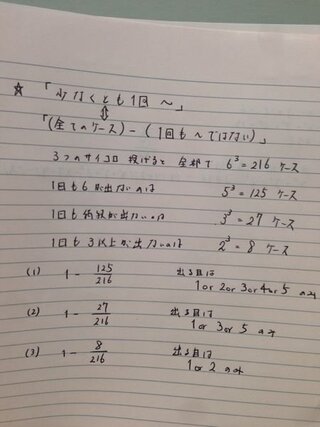 ☆ 「少なくとも1回 〜」
⇕
「(全てのケース) − (1回も〜ではない)」
3つのサイコロ 投げると 全部で 6³=216 ケース
1回も6が出ないのは 5³=125 ケース
1回も偶数が出ないのは 3³=27 ケース
1回も3以上が出ないのは 2³=8 ケース
(1) 1 − 125/216 出る目は
1or 2or 3or 4or 5 のみ
(2) 1 − 27/216 出る目は
1or 3or 5 のみ
(3) 1 − 8/216 出る目は
1or 2 のみ